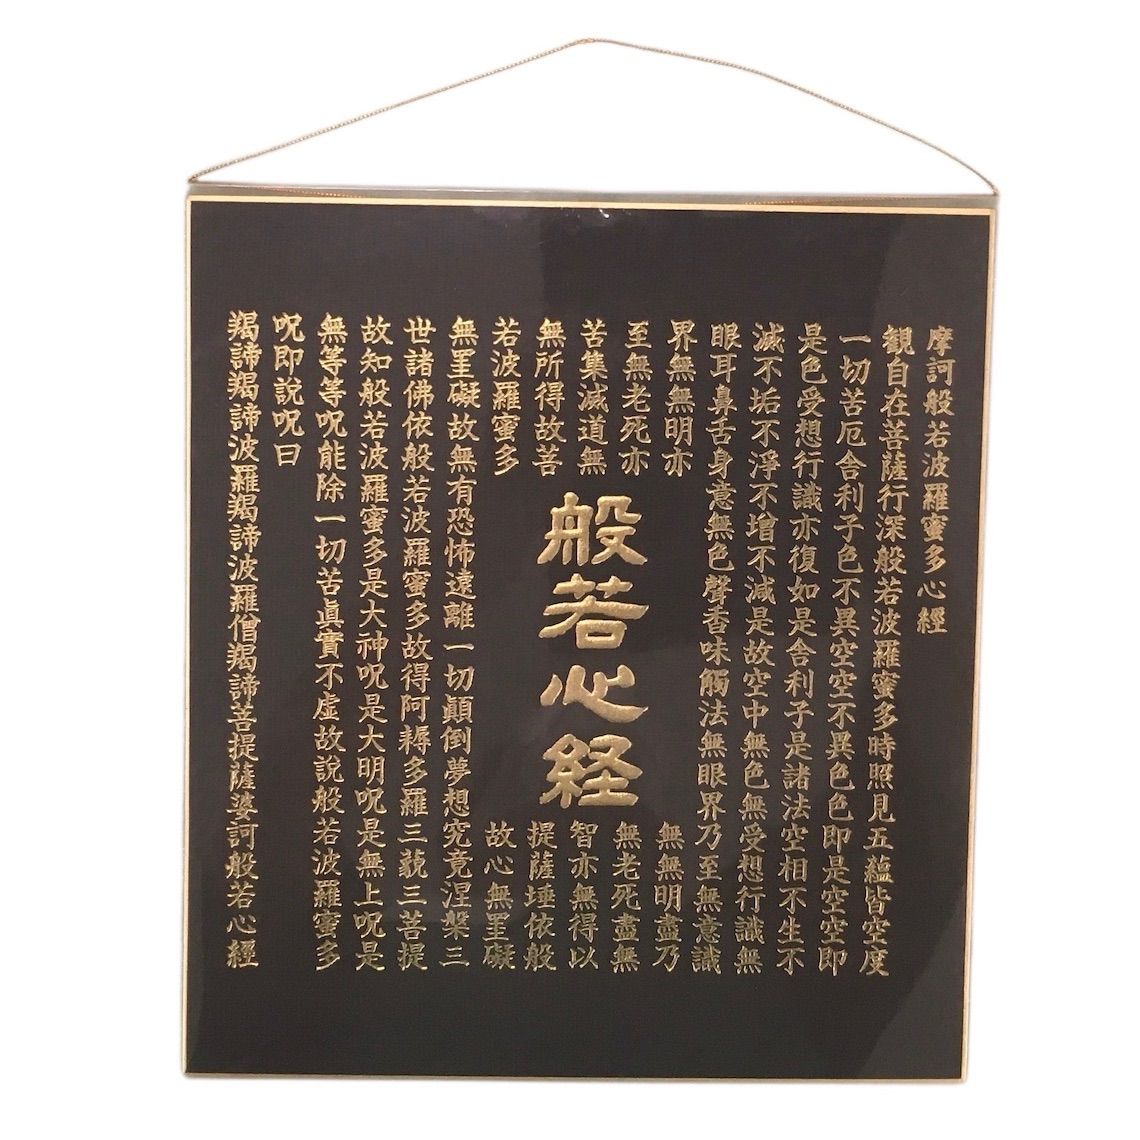 摩訶般若波羅蜜多心經
観自在菩薩行深般若波羅蜜多時照見五蘊皆空度
一切苦厄舎利子色不異空空不異色色即是空空即
是色受想行識亦復如是舎利子是諸法空相不生不
滅不垢不淨不增不減是故空中無色無受想行識無
眼耳鼻舌身意無色聲香味觸法無眼界乃至無意識
界無無明亦
無無明盡乃
至無老死亦
無老死盡無
苦集滅道無
智亦無得以
無所得故菩
提薩埵依般
若波羅蜜多
故心無罣礙
般若心経
無罣礙故無有恐怖遠離一切顚倒夢想究竟涅槃三
世諸佛依般若波羅蜜多故得阿耨多羅三藐三菩提
故知般若波羅蜜多是大神呪是大明呪是無上呪是
無等等呪能除一切苦眞實不虚故說般若波羅蜜多
呪即說呪曰
羯諦羯諦波羅羯諦波羅僧羯諦菩提薩婆訶般若心經